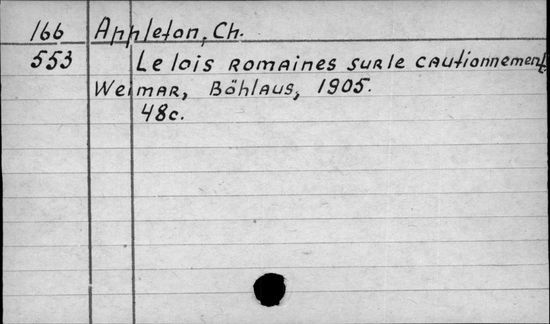 166 Appleton, Ch.
553 Le lois romaines sur le cautionnement
Weimar, Böhlaus, 1905.
48c.